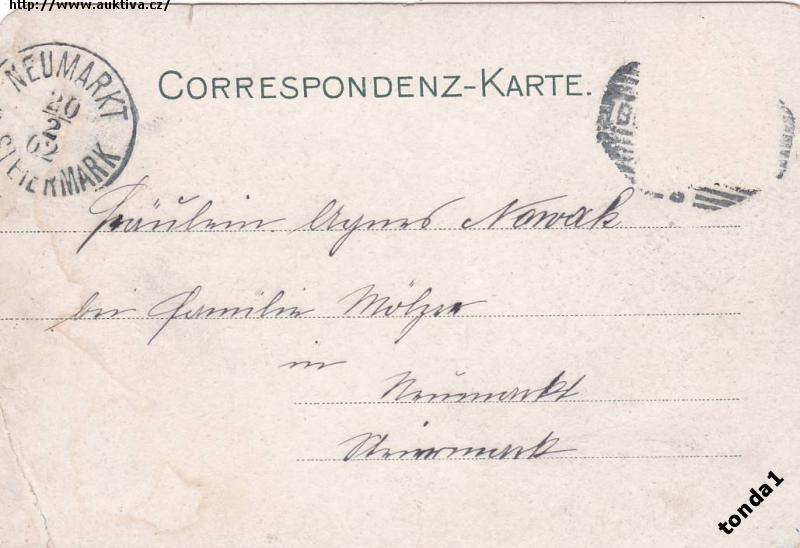 http://www.auktiva.cz/
NEUMARKT
20
2
02
STEIERMARK
CORRESPONDENZ-KARTE.
Fräulein Agnes Nowak
bei Familie Mölzer
in
Neumarkt
Steiermark
tonda1